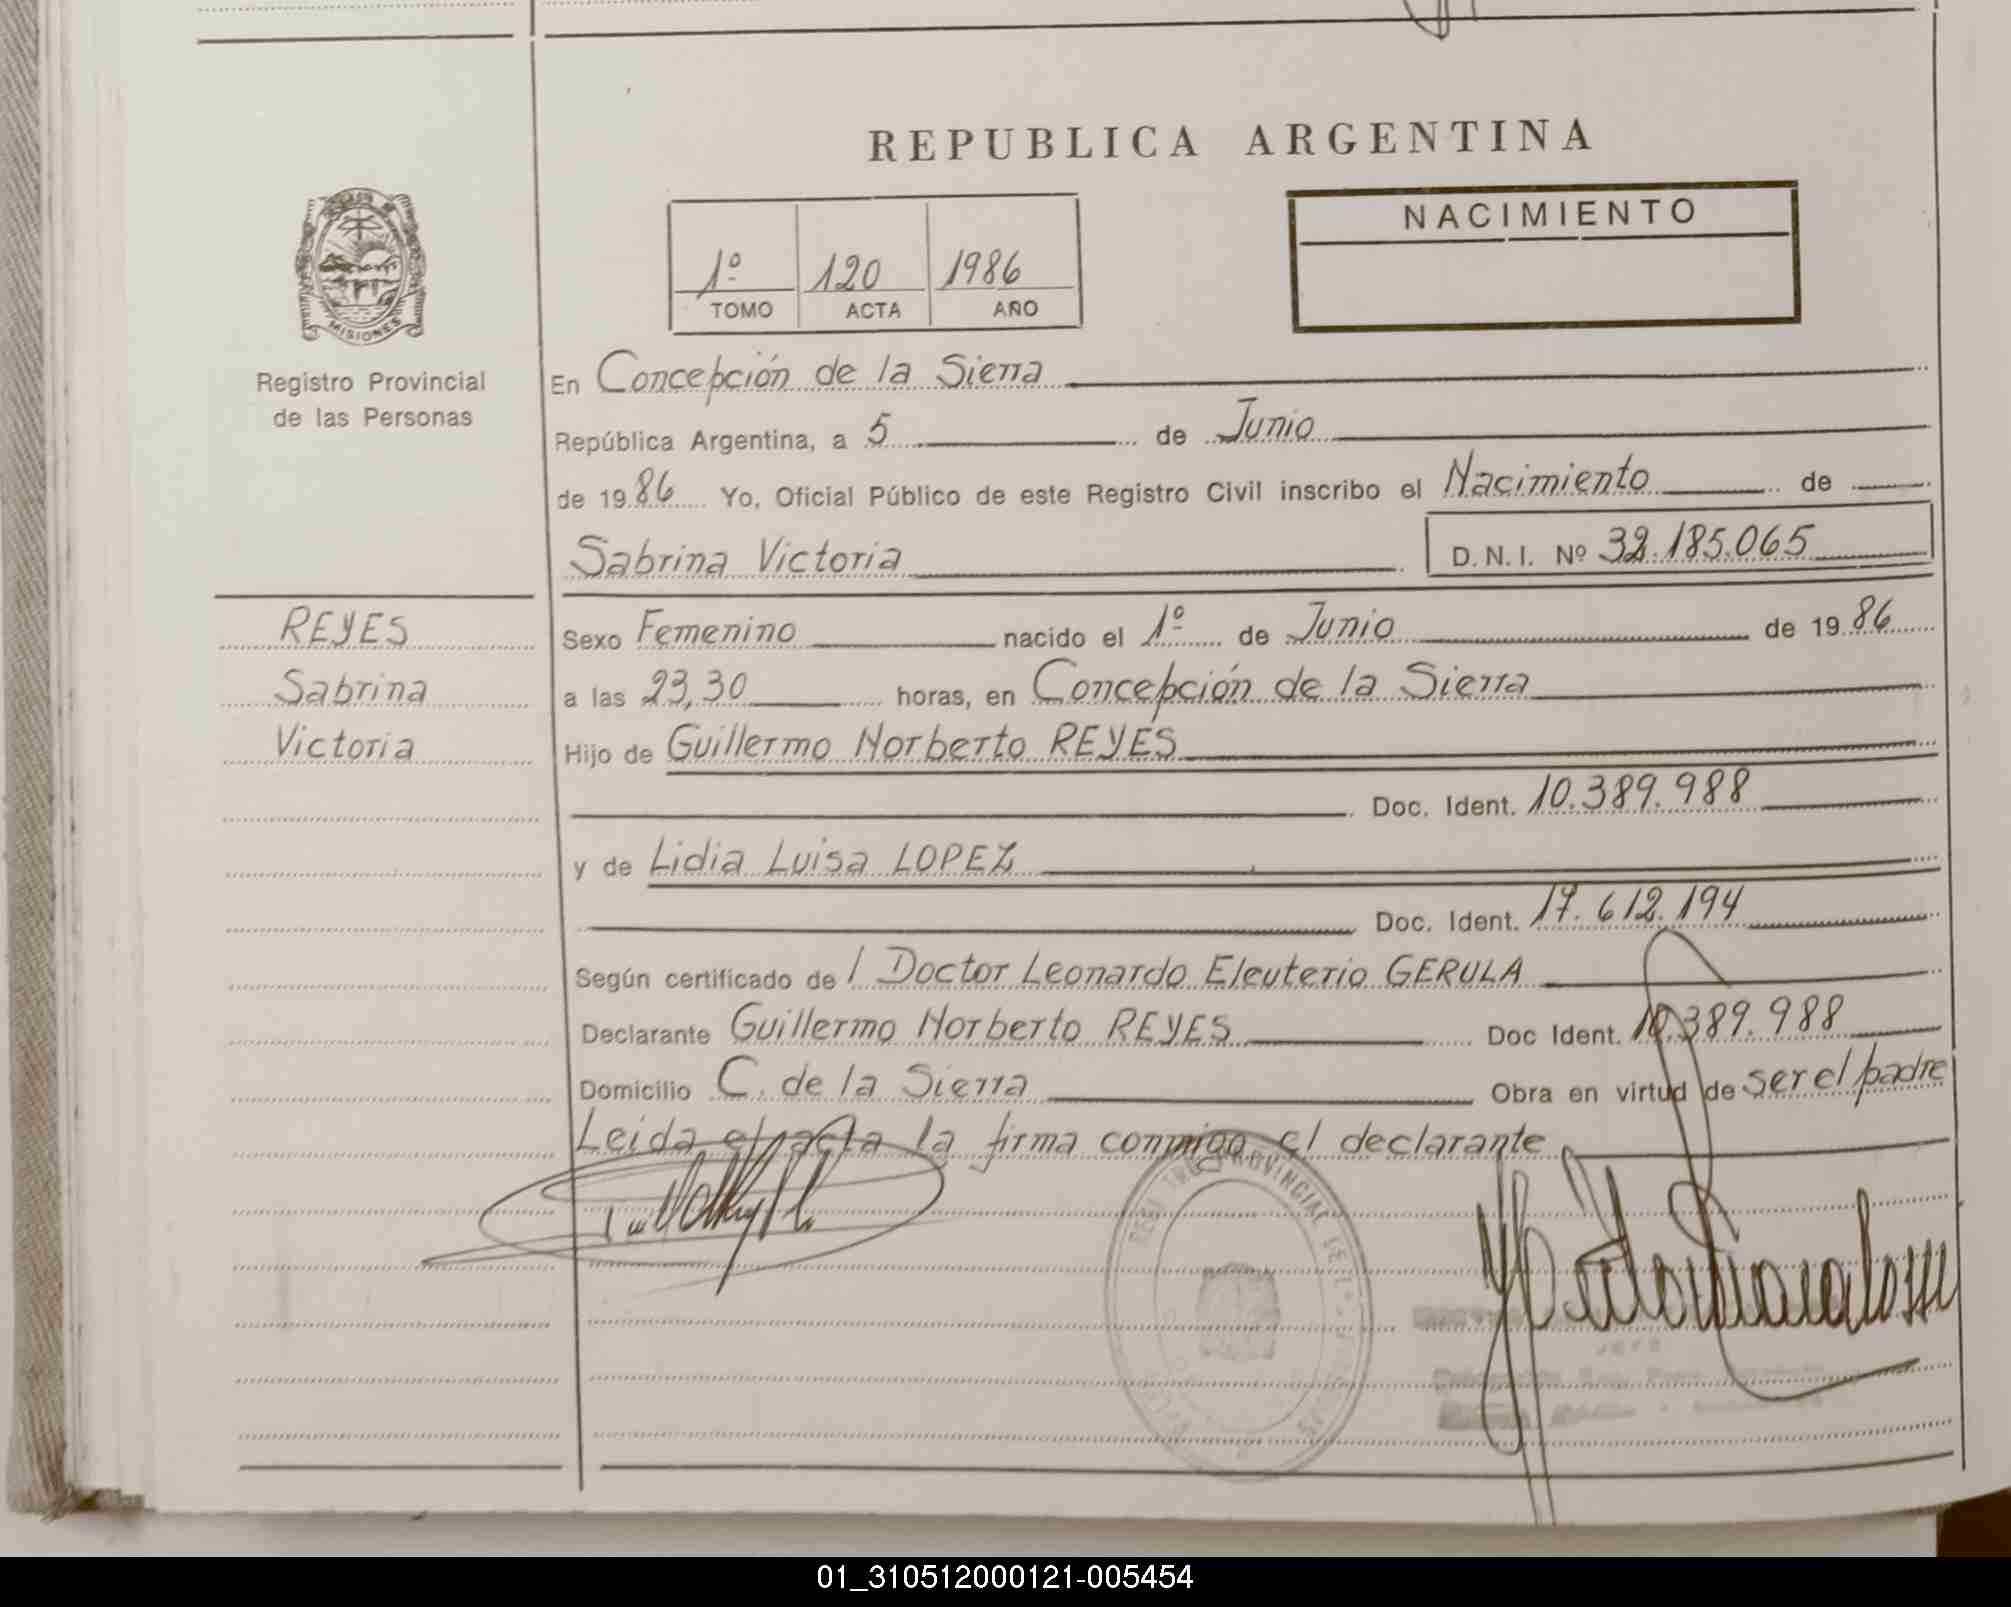 REPUBLICA ARGENTINA
NACIMIENTO
1º 120 1986
TOMO ACTA AÑO
MISIONES
Registro Provincial
de las Personas
En Concepción de la Sierra
República Argentina, a 5 de Junio
de 1986 Yo, Oficial Público de este Registro Civil inscribo el Nacimiento de
Sabrina Victoria D.N.I. Nº 32.185.065
REYES
Sabrina
Victoria
Sexo Femenino nacido el 1º de Junio de 1986
a las 23,30 horas, en Concepción de la Sierra
Hijo de Guillermo Norberto REYES
Doc. Ident. 10.389.988
y de Lidia Luisa LOPEZ
Doc. Ident. 17.612.194
Según certificado de l Doctor Leonardo Eleuterio GERULA
Declarante Guillermo Norberto REYES Doc Ident. 10.389.988
Domicilio C. de la Sierra Obra en virtud de ser el padre
Leida el acta la firma conmigo el declarante
PROVINCIAL
01_310512000121-005454